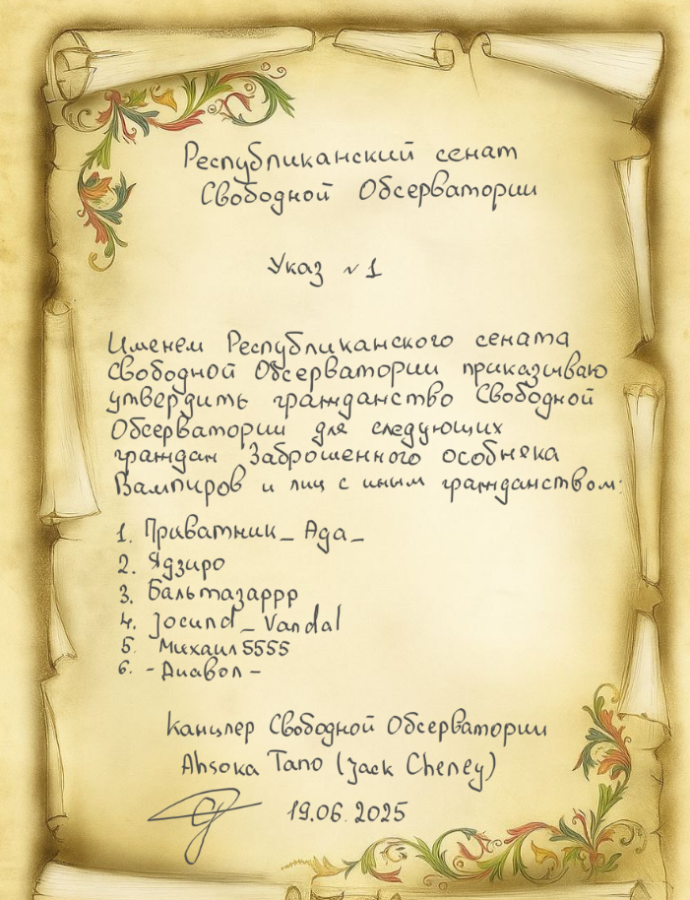 Республиканский сенат
Свободной Обсерватории
Указ №1
Именем Республиканского сената
Свободной Обсерватории приказываю
утвердить гражданство Свободной
Обсерватории для следующих
граждан Заброшенного особняка
Вампиров и лиц с иным гражданством:
1. Приватник_Ада_
2. Ядзиро
3. Бальтазаррр
4. Jocund_Vandal
5. Михаил5555
6. -Диавол-
Канцлер Свободной Обсерватории
Ahsoka Tano (Jack Cheney)
19.06.2025